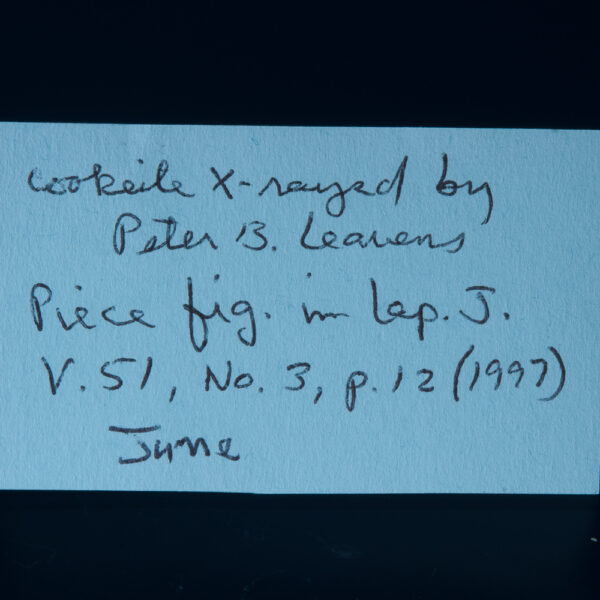 cookeite X-rayed by
Peter B. Leavens
Piece fig. in Lap. J.
V. 51, No. 3, p. 12 (1997)
June